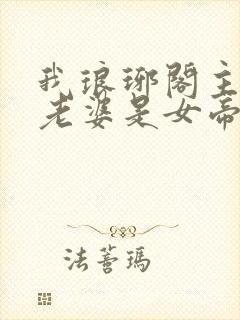 我琅琊阁主
老婆是女帝
法蓍玛